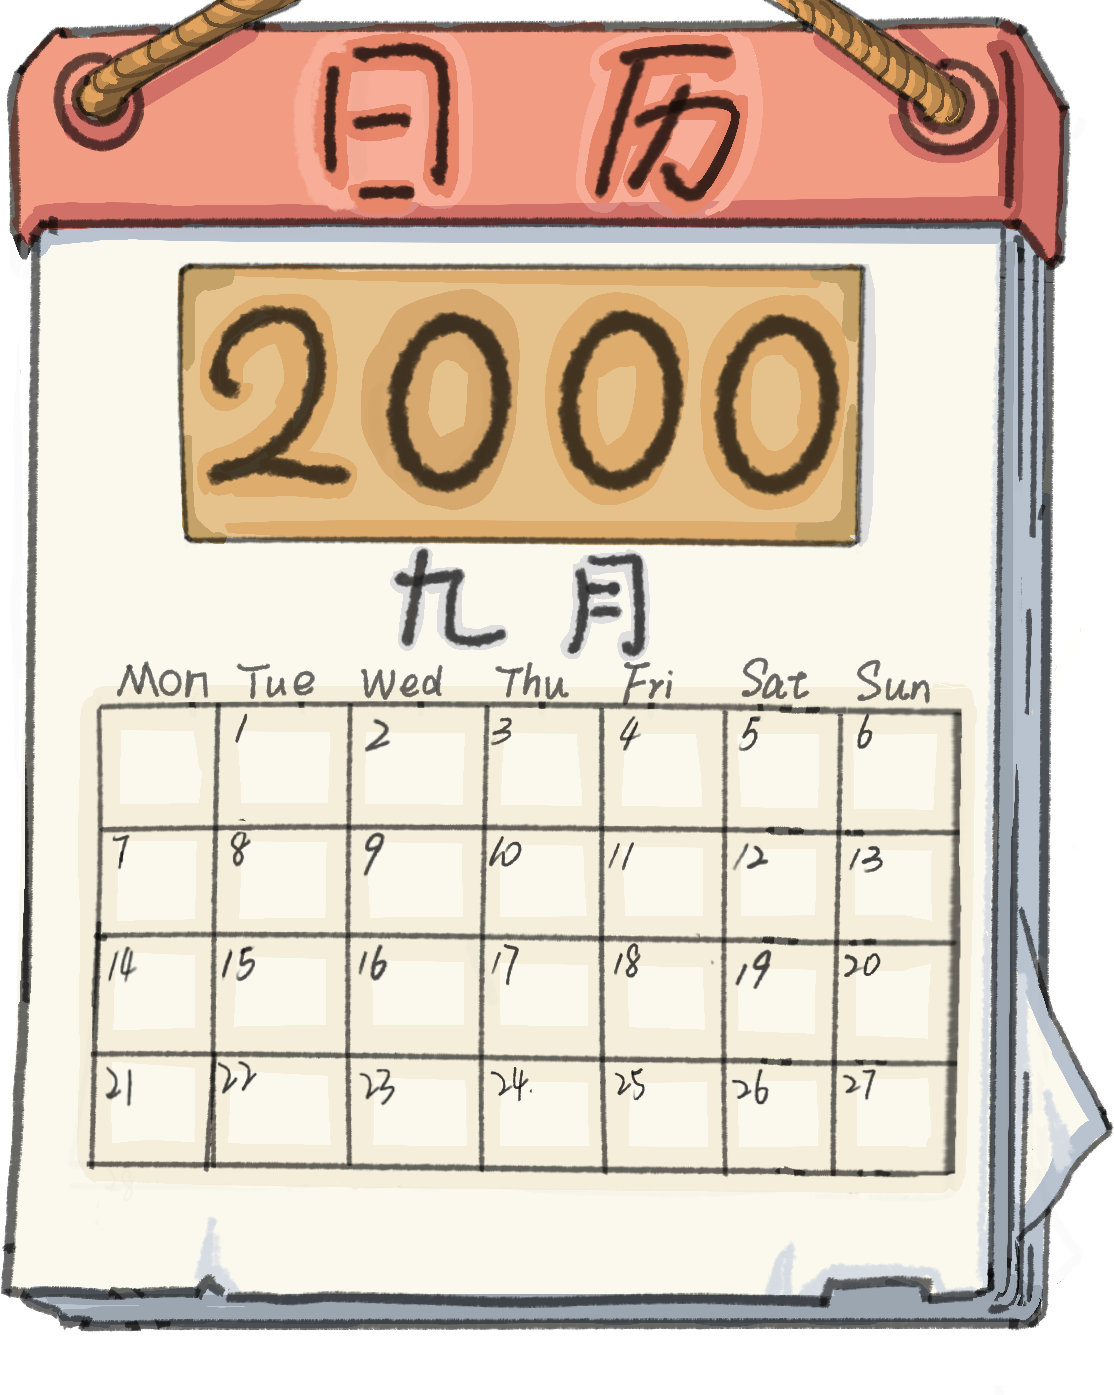 日历
2000
九月
Mon Tue Wed Thu Fri Sat Sun
1 2 3 4 5 6
7 8 9 10 11 12 13
14 15 16 17 18 19 20
21 22 23 24 25 26 27